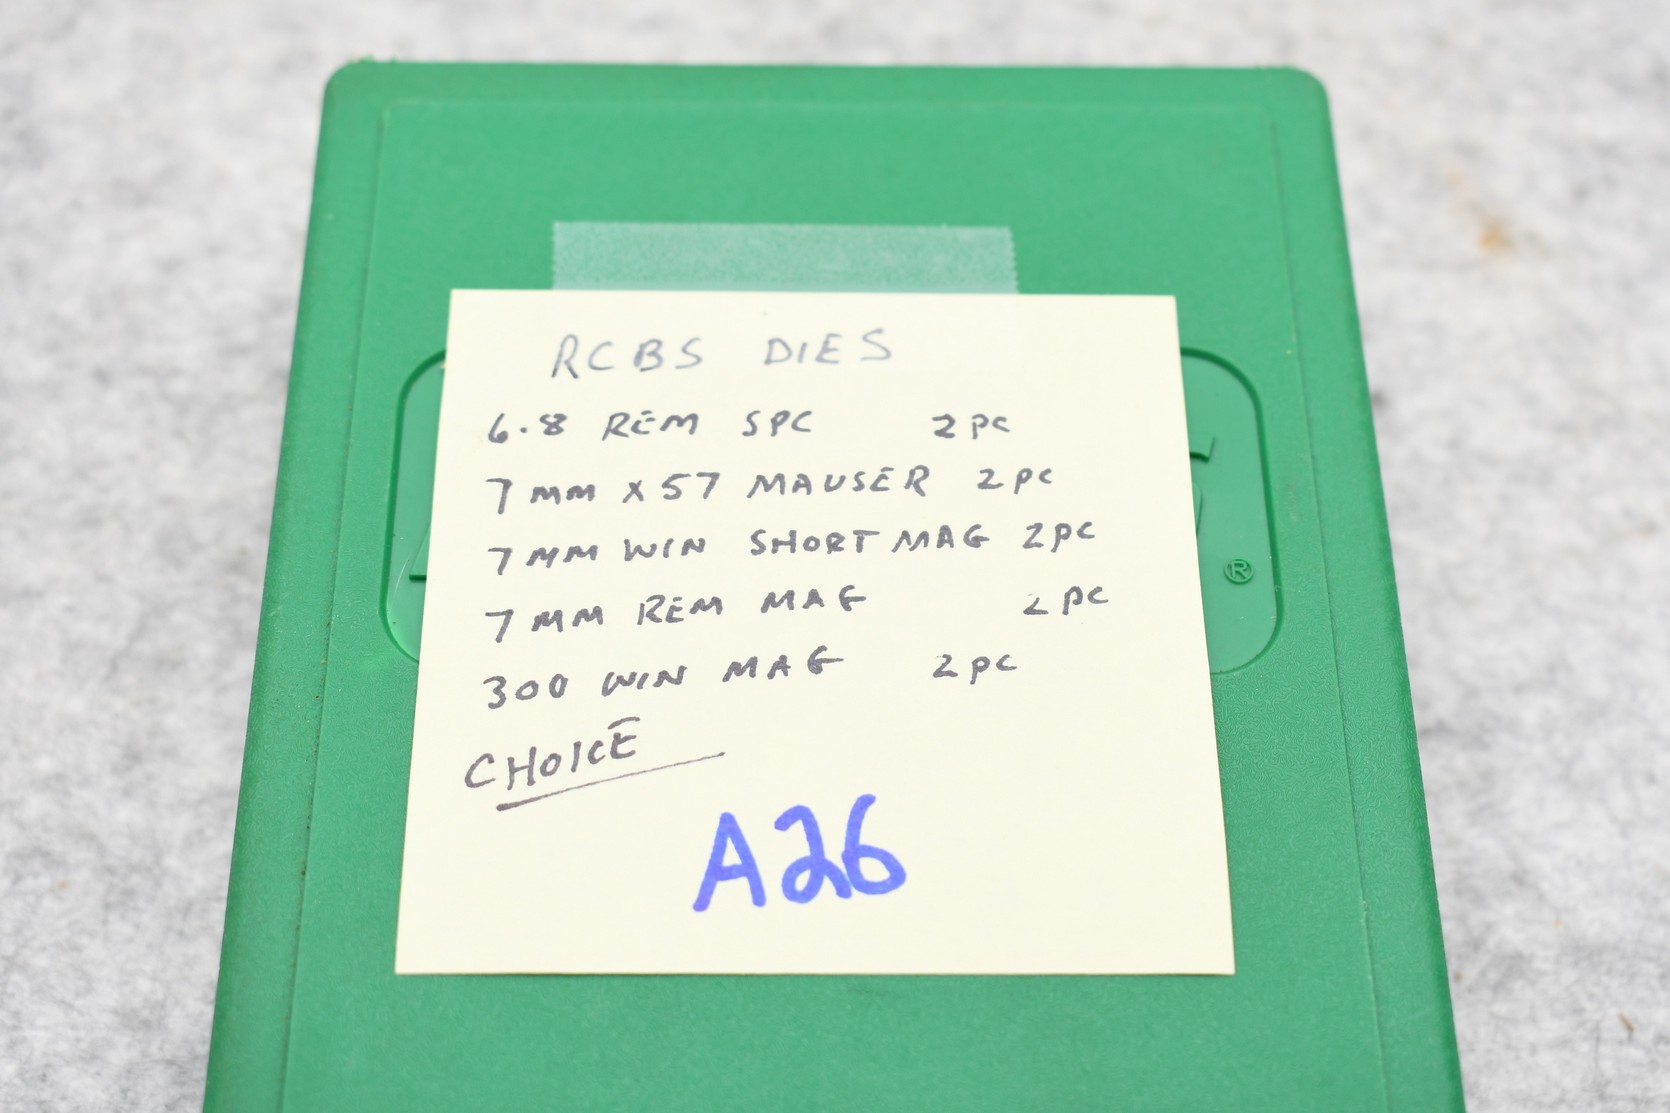 RCBS DIES
6.8 REM SPC 2PC
7MM X 57 MAUSER 2PC
7MM WIN SHORT MAG 2PC
7MM REM MAG 2PC
300 WIN MAG 2PC
CHOICE
A26
®